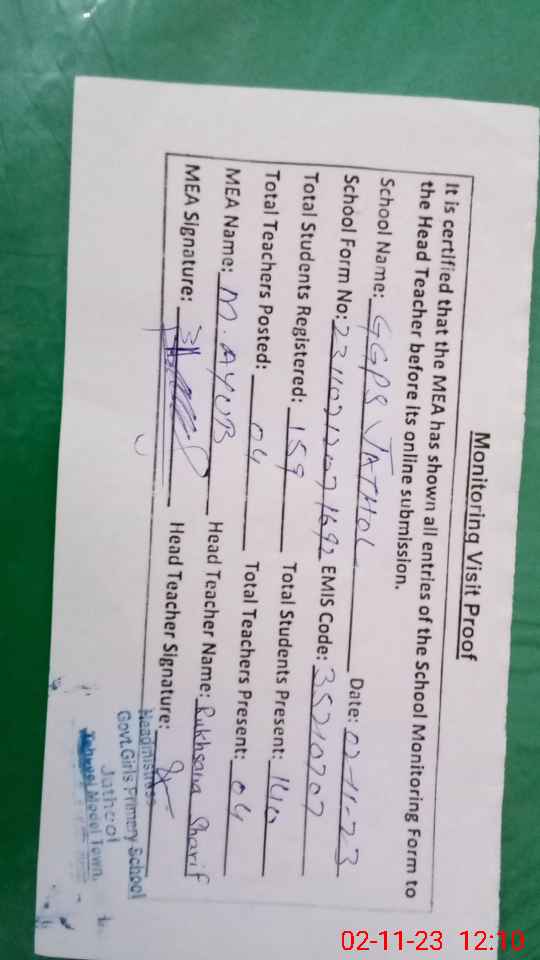 Monitoring Visit Proof
It is certified that the MEA has shown all entries of the School Monitoring Form to
the Head Teacher before its online submission.
School Name: GGPS JATHOL Date: 02-11-23
School Form No: EMIS Code: 35210707
Total Students Registered: 159 Total Students Present: 140
Total Teachers Posted: 04 Total Teachers Present: 04
MEA Name: M. AYUB Head Teacher Name: Rukhsana Sharif
MEA Signature: Head Teacher Signature:
Headmistress
Govt. Girls Primary School
Jatheol
Model Town.
02-11-23 12:10